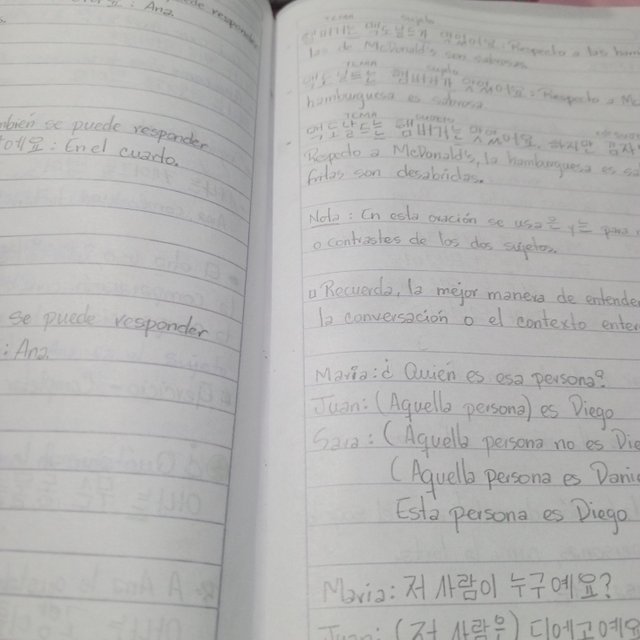 : Ana
uede responder
mbién se puede responder
에요: En el cuarto.
se puede responder
: Ana
Tema Sujeto
햄버거는 맥도날드가 맛있어요: Respecto a las ham
las de McDonald's son sabrosas.
Tema Sujeto
맥도날드는 햄버거가 맛있어요: Respecto a Mc
hamburguesa es sabrosa.
Tema
맥도날드는 햄버거는 맛있어요. 하지만
Respecto a McDonald's, la hamburguesa es sa
fritas son desabridas.
Nota: En esta oración se usa 은 y 는 para
o contrastes de los dos sujetos.
Recuerda, la mejor manera de entende
la conversación o el contexto enter
Maria: ¿Quién es esa persona?
Juan: (Aquella persona) es Diego
Sara: (Aquella persona no es Die
(Aquella persona es Danie
Esta persona es Diego
Maria: 저 사람이 누구예요?
Juan: (저 사람은) 디에고예요